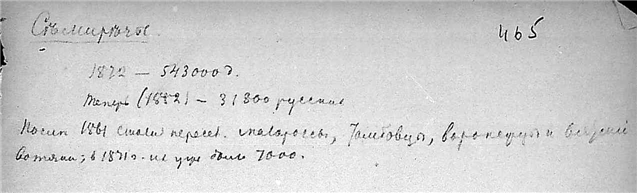 Съмирѣчье. 465
1872 — 543000 д.
Теперь (1882) — 31800 русских
После 1861 стали пересел. малороссы, Тамбовцы, воронежцы и
вотяки; в 1871 г. их уже было 7000.